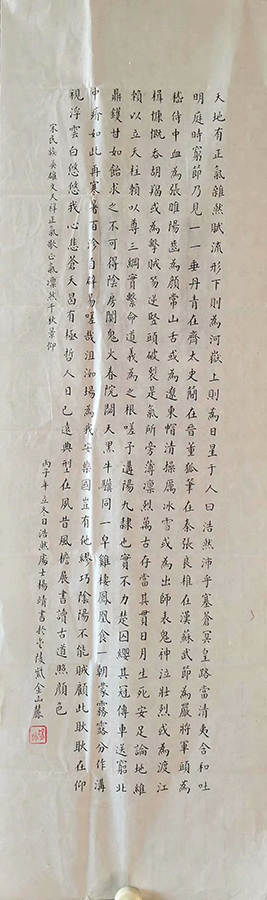 天地有正氣雜然賦流形下則為河嶽上則為日星于人曰浩然沛乎塞蒼冥皇路當清夷含和吐
明庭時窮節乃見一一垂丹青在齊太史簡在晉董狐筆在秦張良椎在漢蘇武節為嚴將軍頭為
嵇侍中血為張睢陽齒為顏常山舌或為遼東帽清操厲冰雪或為出師表鬼神泣壯烈或為渡江
楫慷慨吞胡羯或為擊賊笏逆豎頭破裂是氣所旁薄凜烈萬古存當其貫日月生死安足論地維
賴以立天柱賴以尊三綱實繫命道義為之根嗟予遘陽九隸也實不力楚囚纓其冠傳車送窮北
鼎鑊甘如飴求之不可得陰房闃鬼火春院閟天黑牛驥同一皁雞棲鳳凰食一朝蒙霧露分作溝
中瘠如此再寒暑百沴自辟易嗟哉沮洳場為我安樂國豈有他繆巧陰陽不能賊顧此耿耿在仰
視浮雲白悠悠我心悲蒼天曷有極哲人日已遠典型在夙昔風檐展書讀古道照顏色
宋民族英雄文天祥正氣歌正氣凜然千秋景仰
丙子年立冬日浩然處士楊靖書於金陵紫金山麓